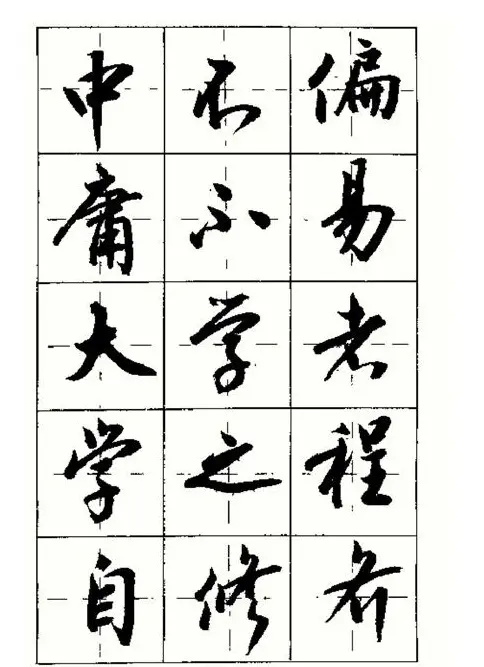 中不偏
庸不易
大学者
学之程
自修齐